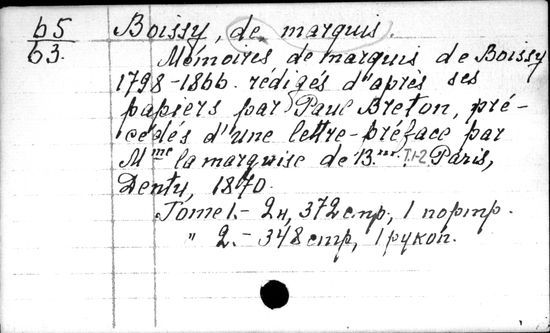 65
63.
Boissy, de marquis.
Mémoires de marquis de Boissy
1798-1866. rédigés d'après ses
papiers par Paul Breton, pré-
cédés d'une lettre-préface par
Mme la marquise de B. T.1-2 Paris,
Dentu, 1870.
Tome 1. - 2н, 372 стр., 1 портр.
" 2. - 348 стр, 1 рукоп.